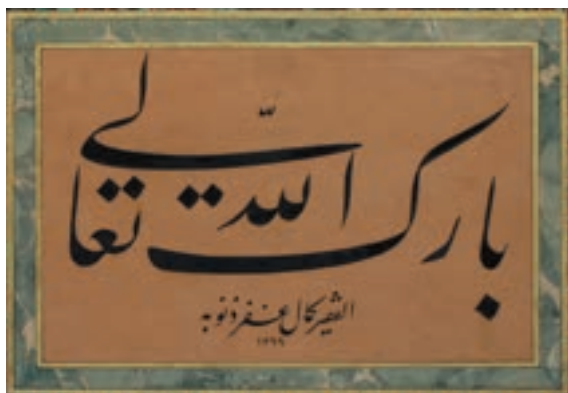 بارك الله تعالى
الفقير كمال غفر ذنوبه
١٢٩٩